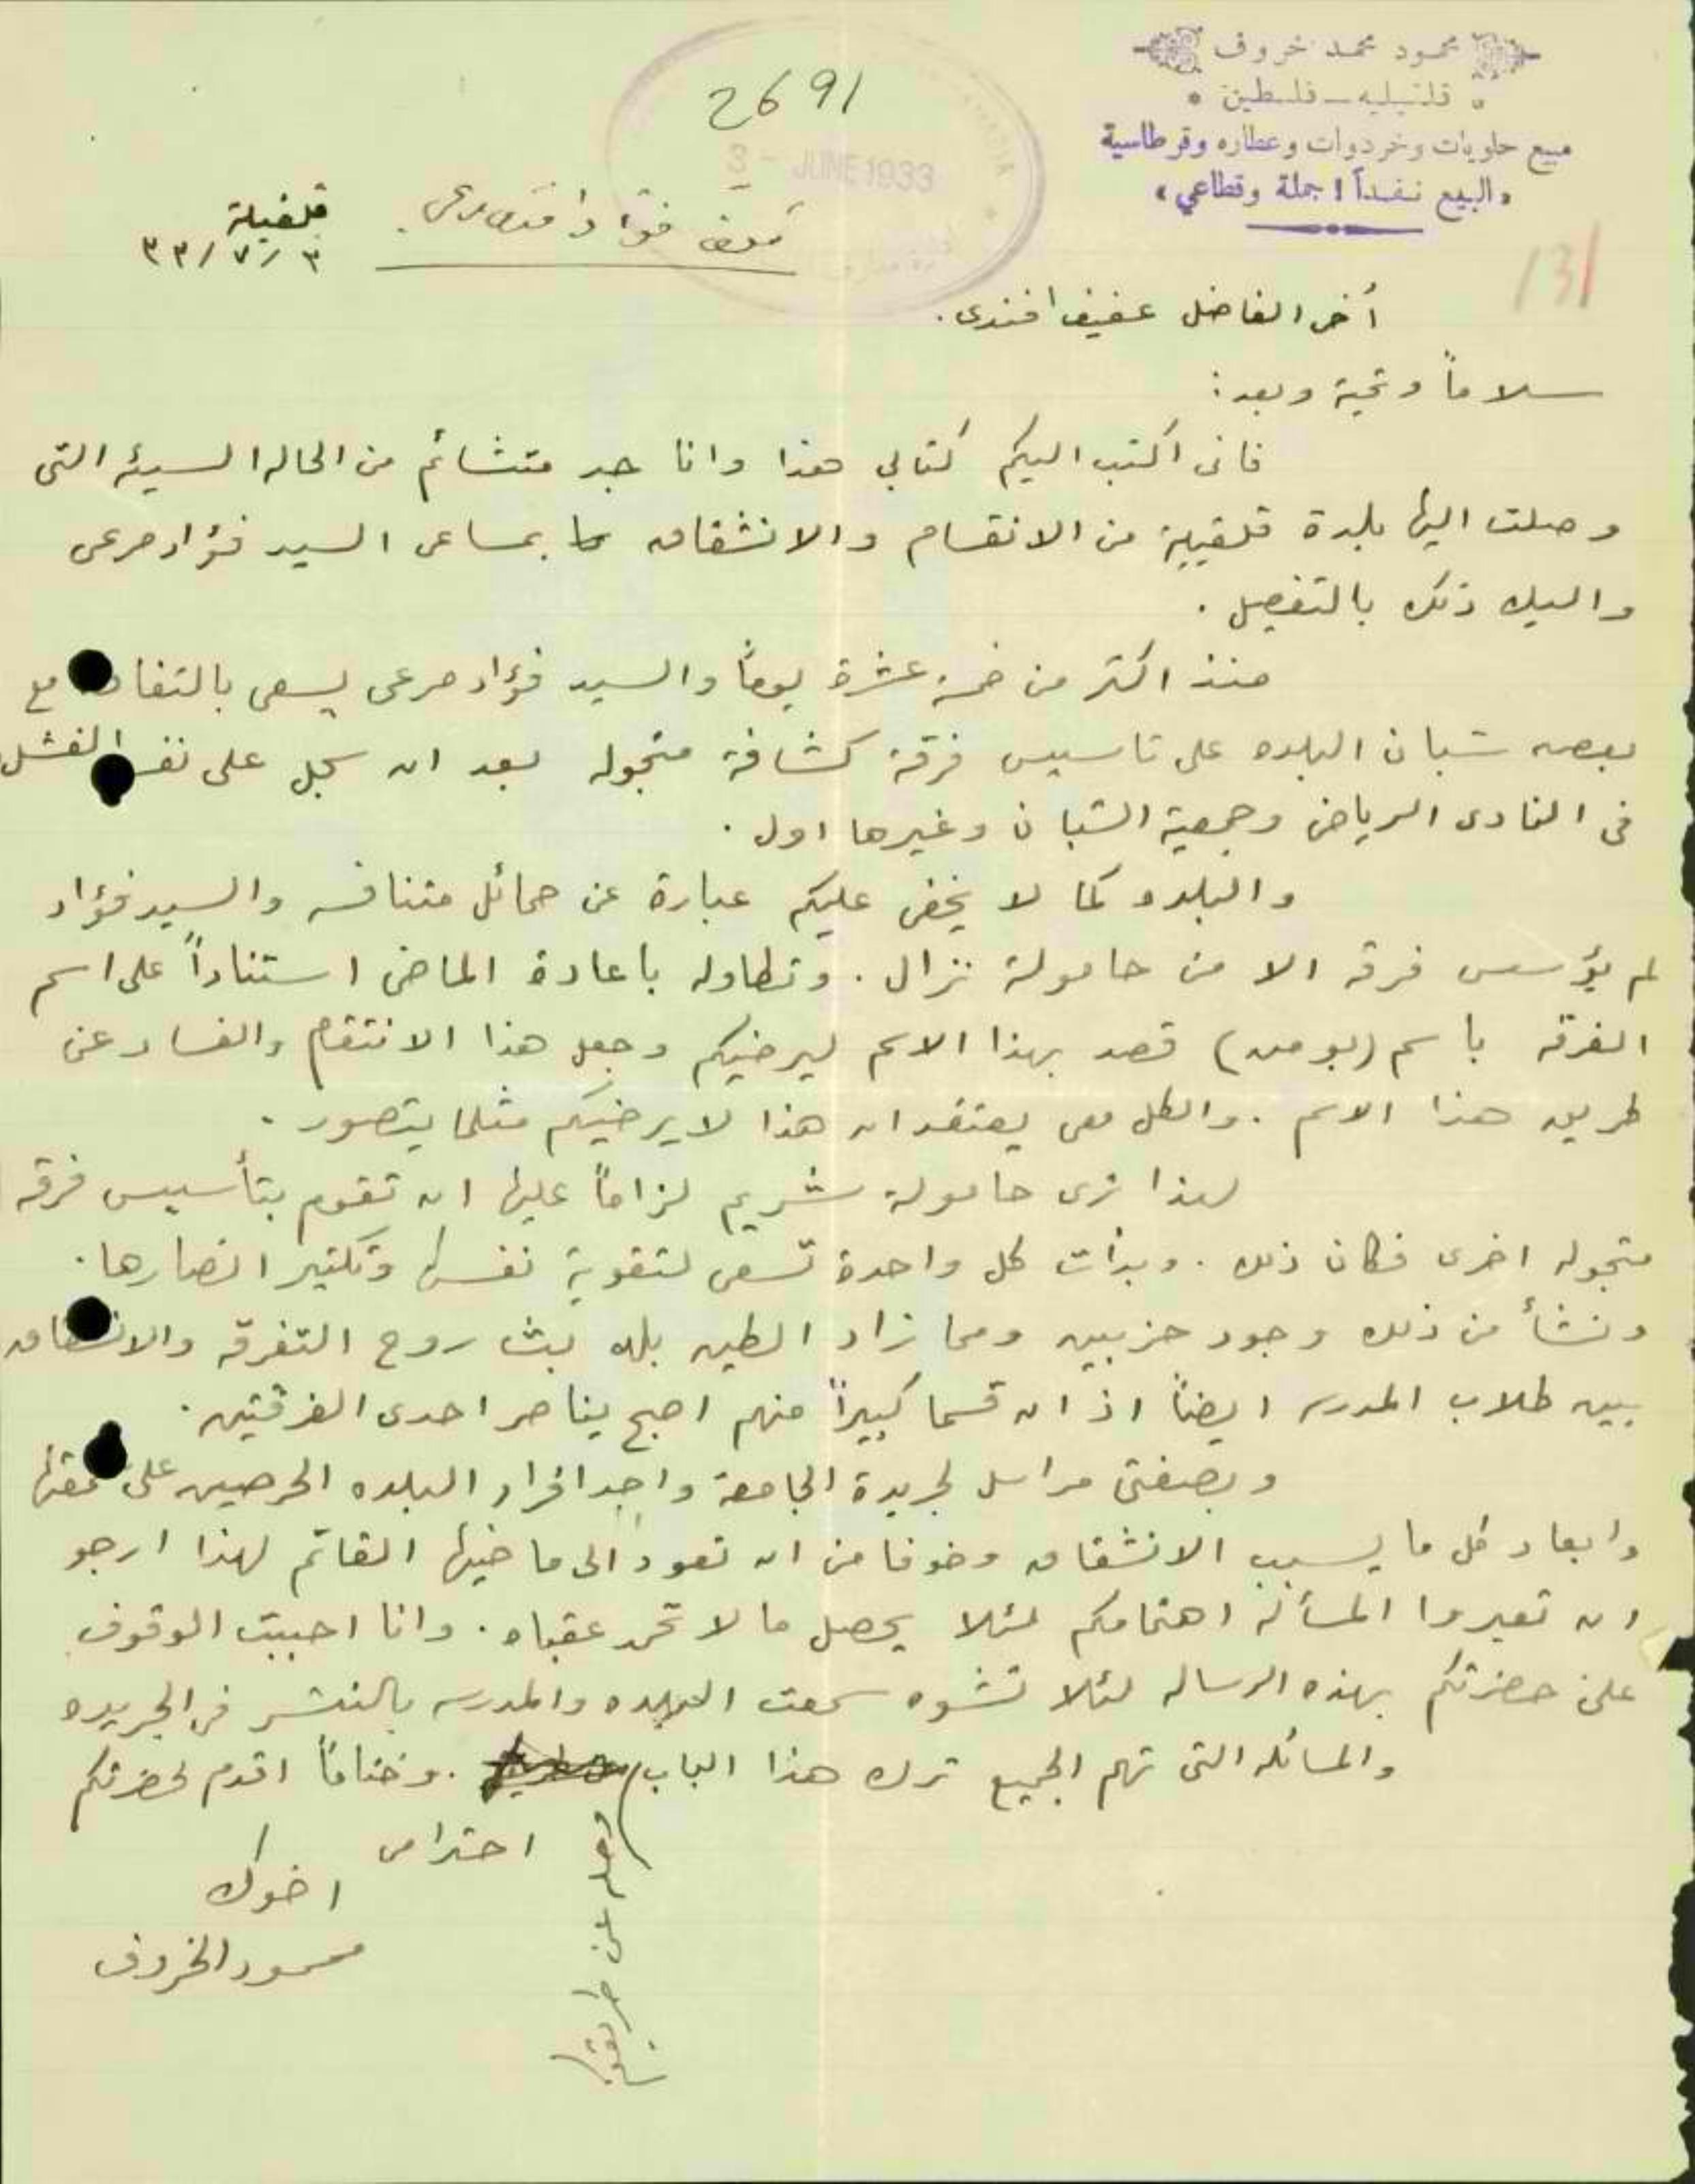 محمود محمد خروف
قلقيليه ــ فلسطين
مبيع حلويات وخردوات وعطاره وقرطاسية
«البيع نقداً! جملة وقطاعي»
2691
3 - JUNE 1933
131
قلقيلية
٣/٧/٣٣
أخي الفاضل عفيف افندي.
سلاماً وتحية وبعد:
فاني اكتب اليكم كتابي هذا وانا جد متشائم من الحاله السيئه التي
وصلت اليها بلدة قلقيلية من الانقسام والانشقاق بمساعي السيد فؤاد مرعي
واليك ذلك بالتفصيل.
منذ اكثر من خمسة عشرة يوماً والسيد فؤاد مرعي يسعى مع
بعض شبان البلده على تاسيس فرقة كشافة متجوله بعد ان سجل على الفشل
في النادي الرياضي وجمعية الشبان وغيرها اول.
والبلده كما لا يخفى عليكم عبارة عن حمائل متنافسه والسيد فؤاد
لم يؤسس فرقه الا من حامولة نزال. وتطاوله باعادة الماضي استناداً على اسم
الفرقه باسم ( ) قصد بهذا الاسم ليرضيكم وجعل هذا الانتقام والفساد عن
طريق هذا الاسم. والكل معي يعتقد ان هذا لا يرضيكم مثلما يتصور.
لهذا ترى حامولة شريم لزاماً عليها ان تقوم بتأسيس فرقه
متجوله اخرى فكان ذلك. وبدأت كل واحدة تسعى لتقوية نفسها وتكثير انصارها.
ونشأ من ذلك وجود حزبين ومما زاد الطين بله بث روح التفرقه
بين طلاب المدرسه ايضاً اذ ان قسما كبيراً منهم اصبح يناصر احدى الفرقتين.
وبصفتي مراسل لجريدة الجامعة واحد افراد البلده الحرصين على سمعتها
وابعاد كل ما يسبب الانشقاق وخوفا من ان تعود الى ماضيها القاتم لهذا ارجو
ان تعيروا المسألة اهتمامكم لئلا يحصل ما لا تحمد عقباه. وانا احببت الوقوف
على حضرتكم بهذه الرساله لئلا تشوه سمعت البلده والمدرسه بالنشر في الجريده
والمسائله التي تهم الجميع ترك هذا الباب. وختاماً اقدم لحضرتكم
احترامي
اخوك
محمود الخروف